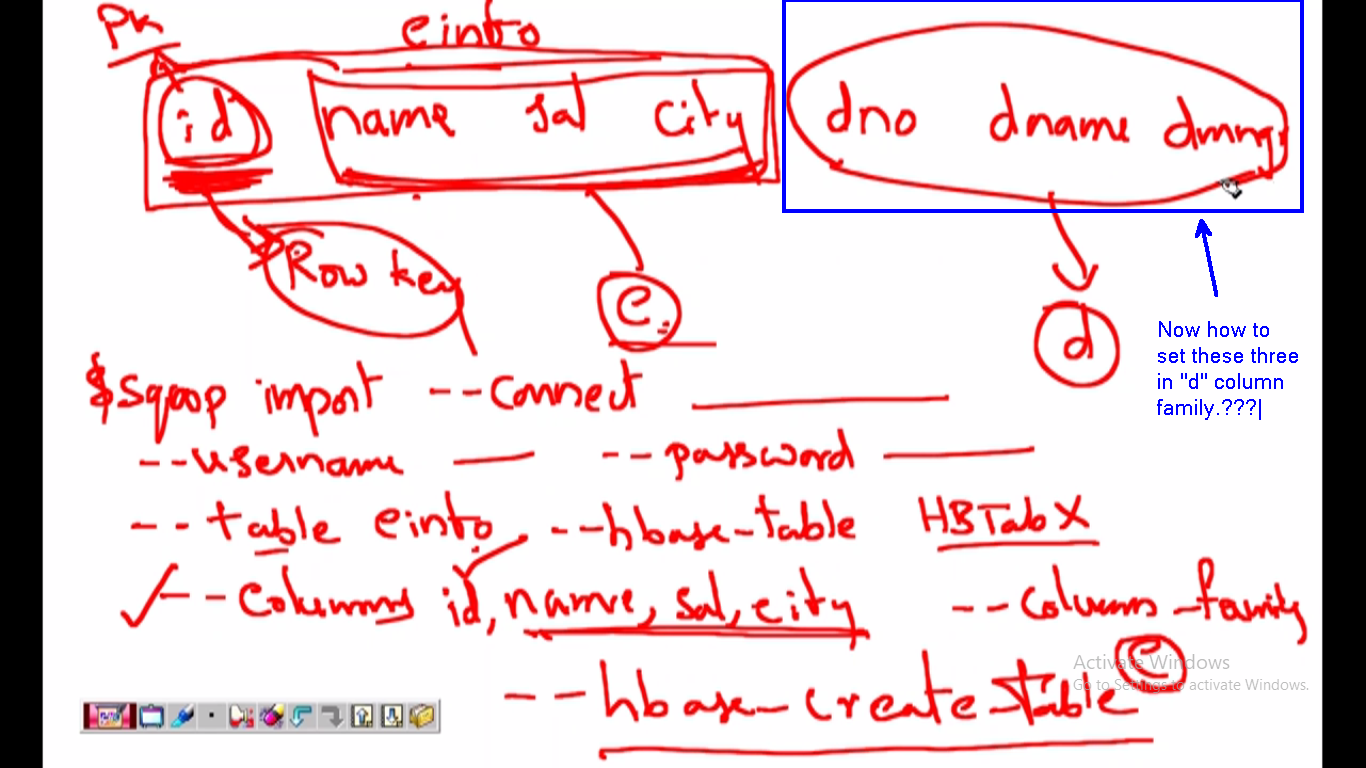 PK
einfo
id name sal city dno dname dmngr
Row key
e
d
Now how to
set these three
in "d" column
family.???|
$sqoop import --connect
--username --password
--table einfo --hbase-table HBTabX
--columns id, name, sal, city --column-family
e
Activate Windows
Go to Settings to activate Windows.
--hbase-create-table